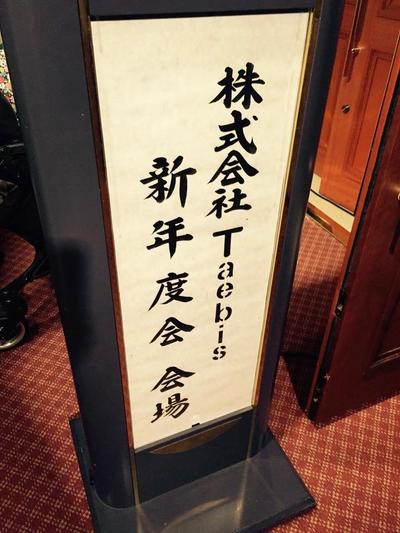 株式会社Taebis
新年度会会場